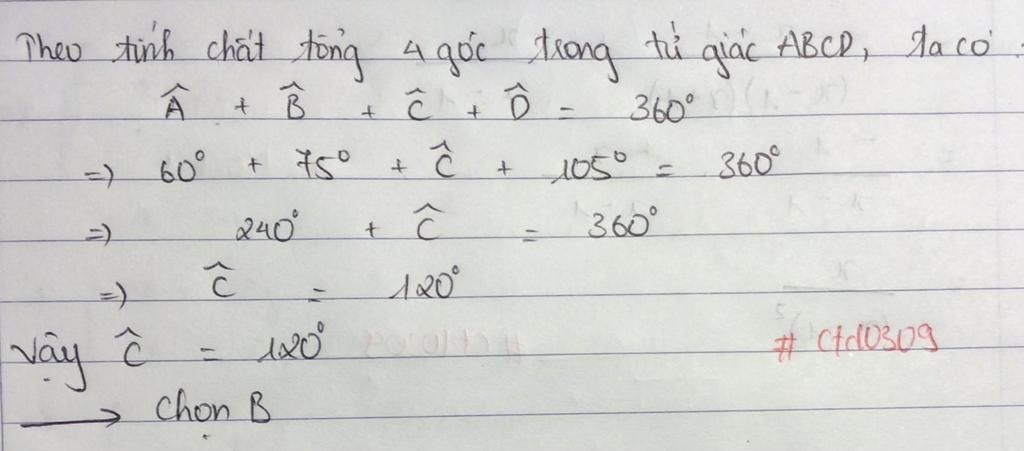 Theo tính chất tổng 4 góc trong tứ giác ABCD, ta có :
Â + B̂ + Ĉ + D̂ = 360°
=) 60° + 75° + Ĉ + 105° = 360°
=) 240° + Ĉ = 360°
=) Ĉ = 120°
Vậy Ĉ = 120°
# Ctd0309
→ Chọn B